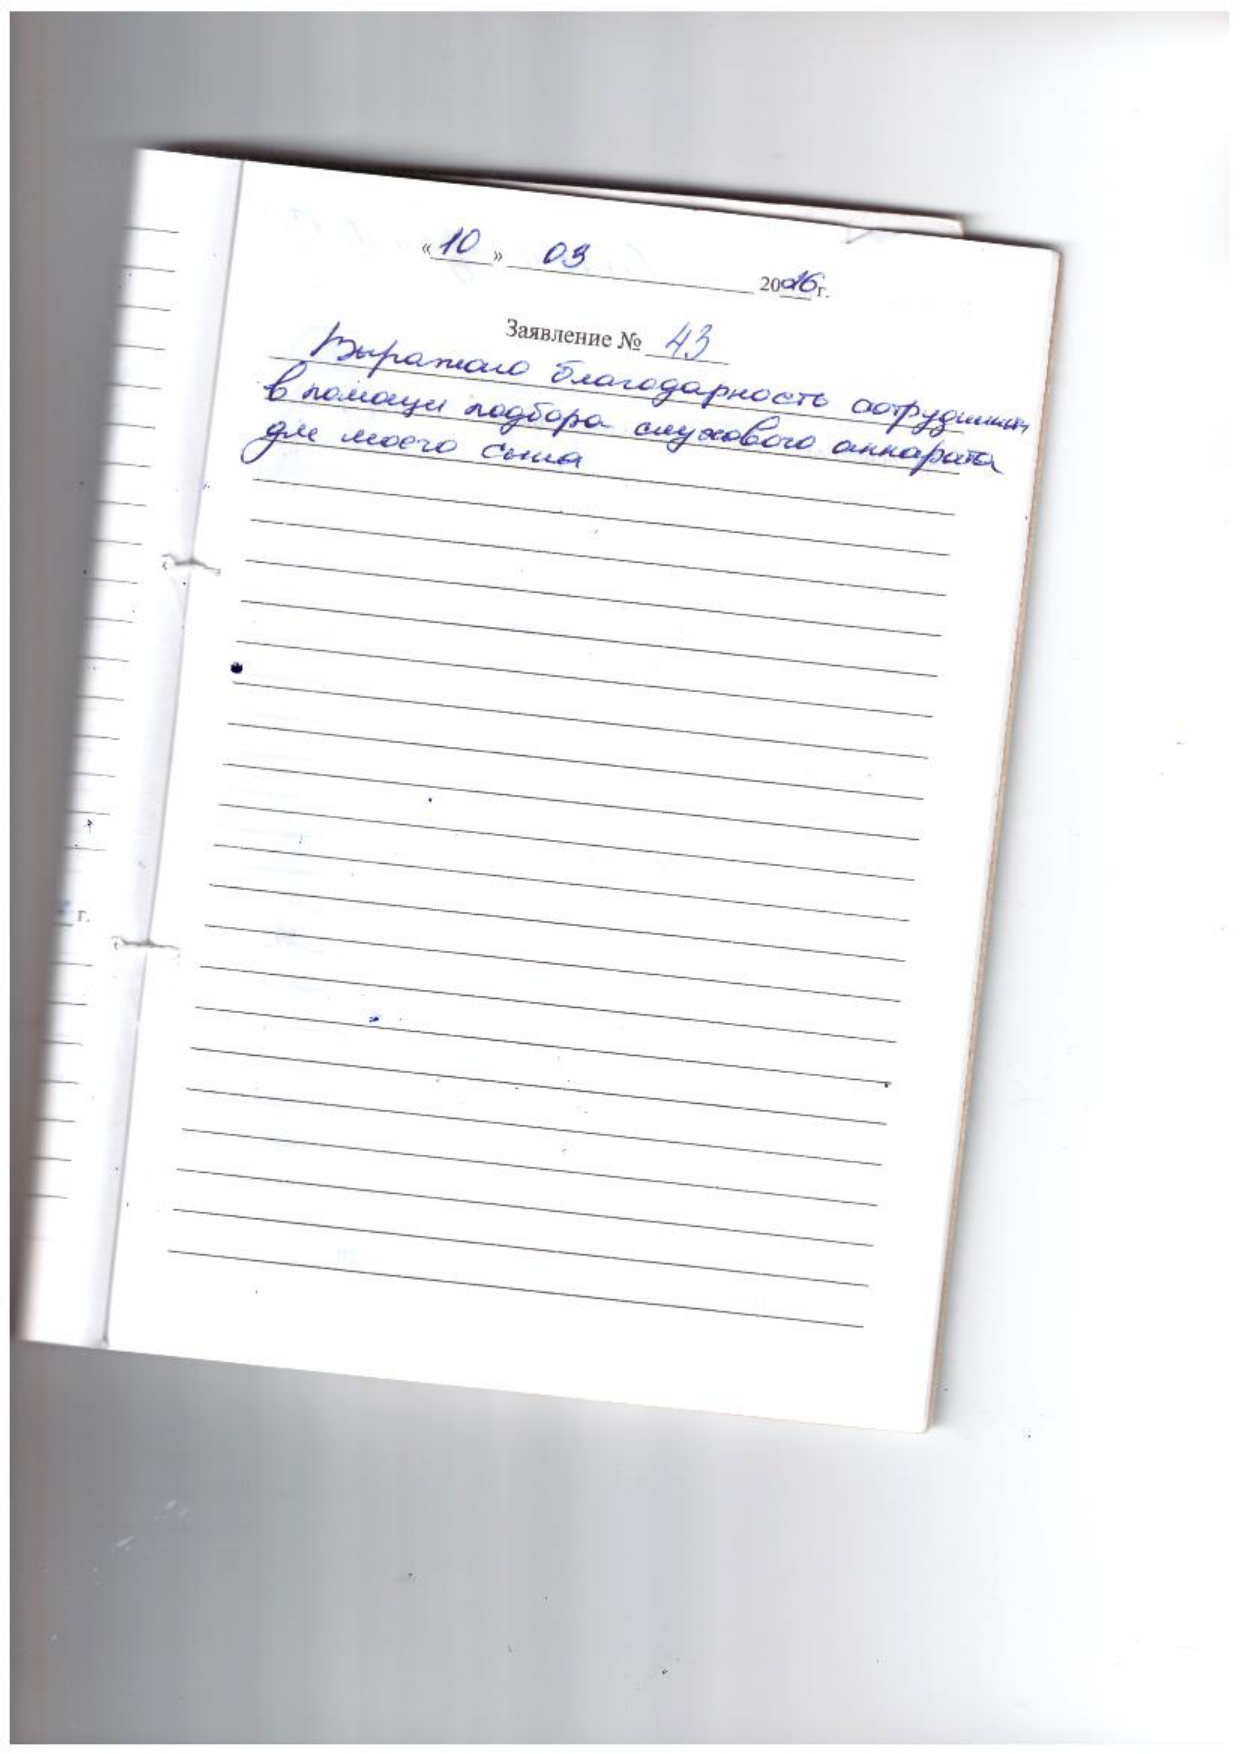 «10» 03 2026 г.
Заявление № 43
Выражаю благодарность сотрудникам
в помощи подбора слухового аппарата
для моего сына
г.